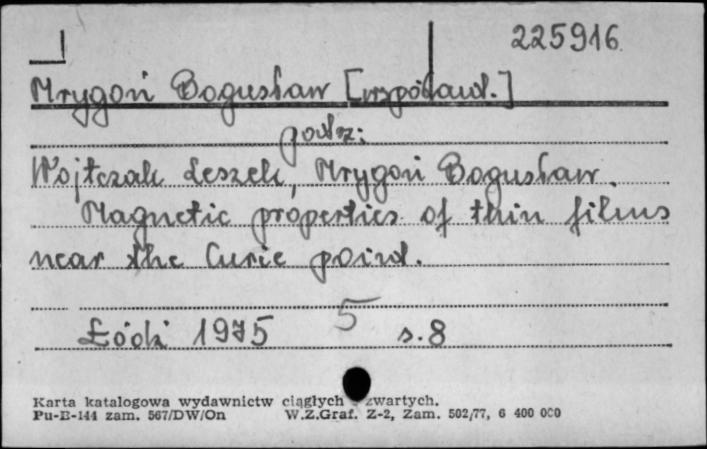 225916
Mrygoń Bogusław [współaut.]
podz:
Wojtczak Leszek, Mrygoń Bogusław.
Magnetic properties of thin films
near the Curie point.
5
Łódź 1975 s.8
Karta katalogowa wydawnictw ciągłych zwartych.
Pu-B-144 zam. 567/DW/On W.Z.Graf. Z-2, Zam. 502/77, 6 400 000